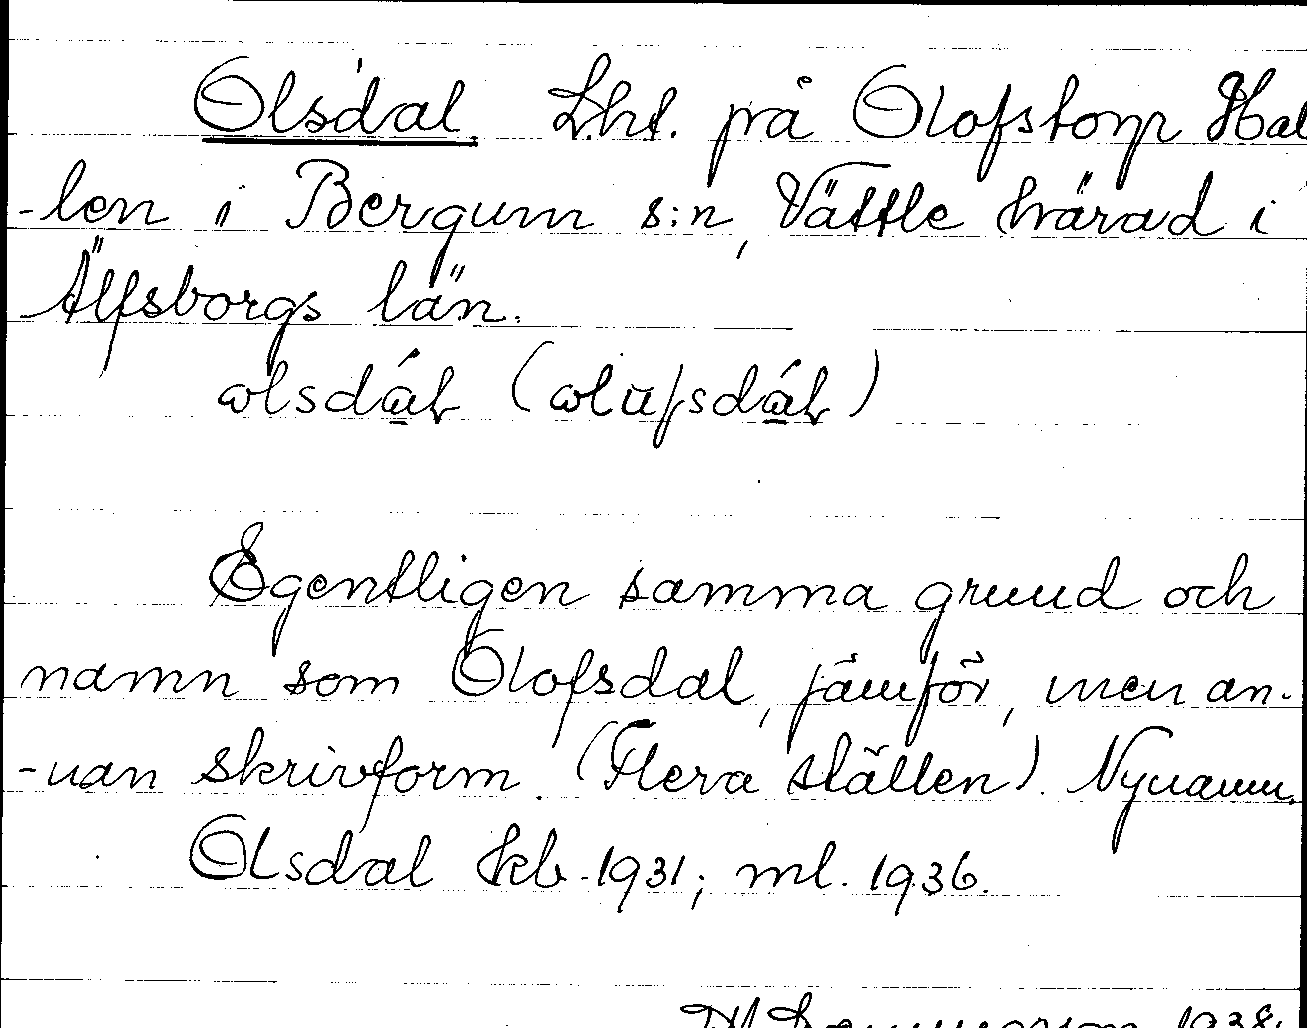 Olsdal. Lht. på Olofstorp Hal
-len i Bergum s:n, Vättle härad i
Älfsborgs län.
ωlsdál (ωlufsdál)
Egentligen samma grund och
namn som Olofsdal, jämför, men an-
-nan skrivform. (Flera ställen). Nynamn.
Olsdal kb. 1931; ml. 1936.
1938.